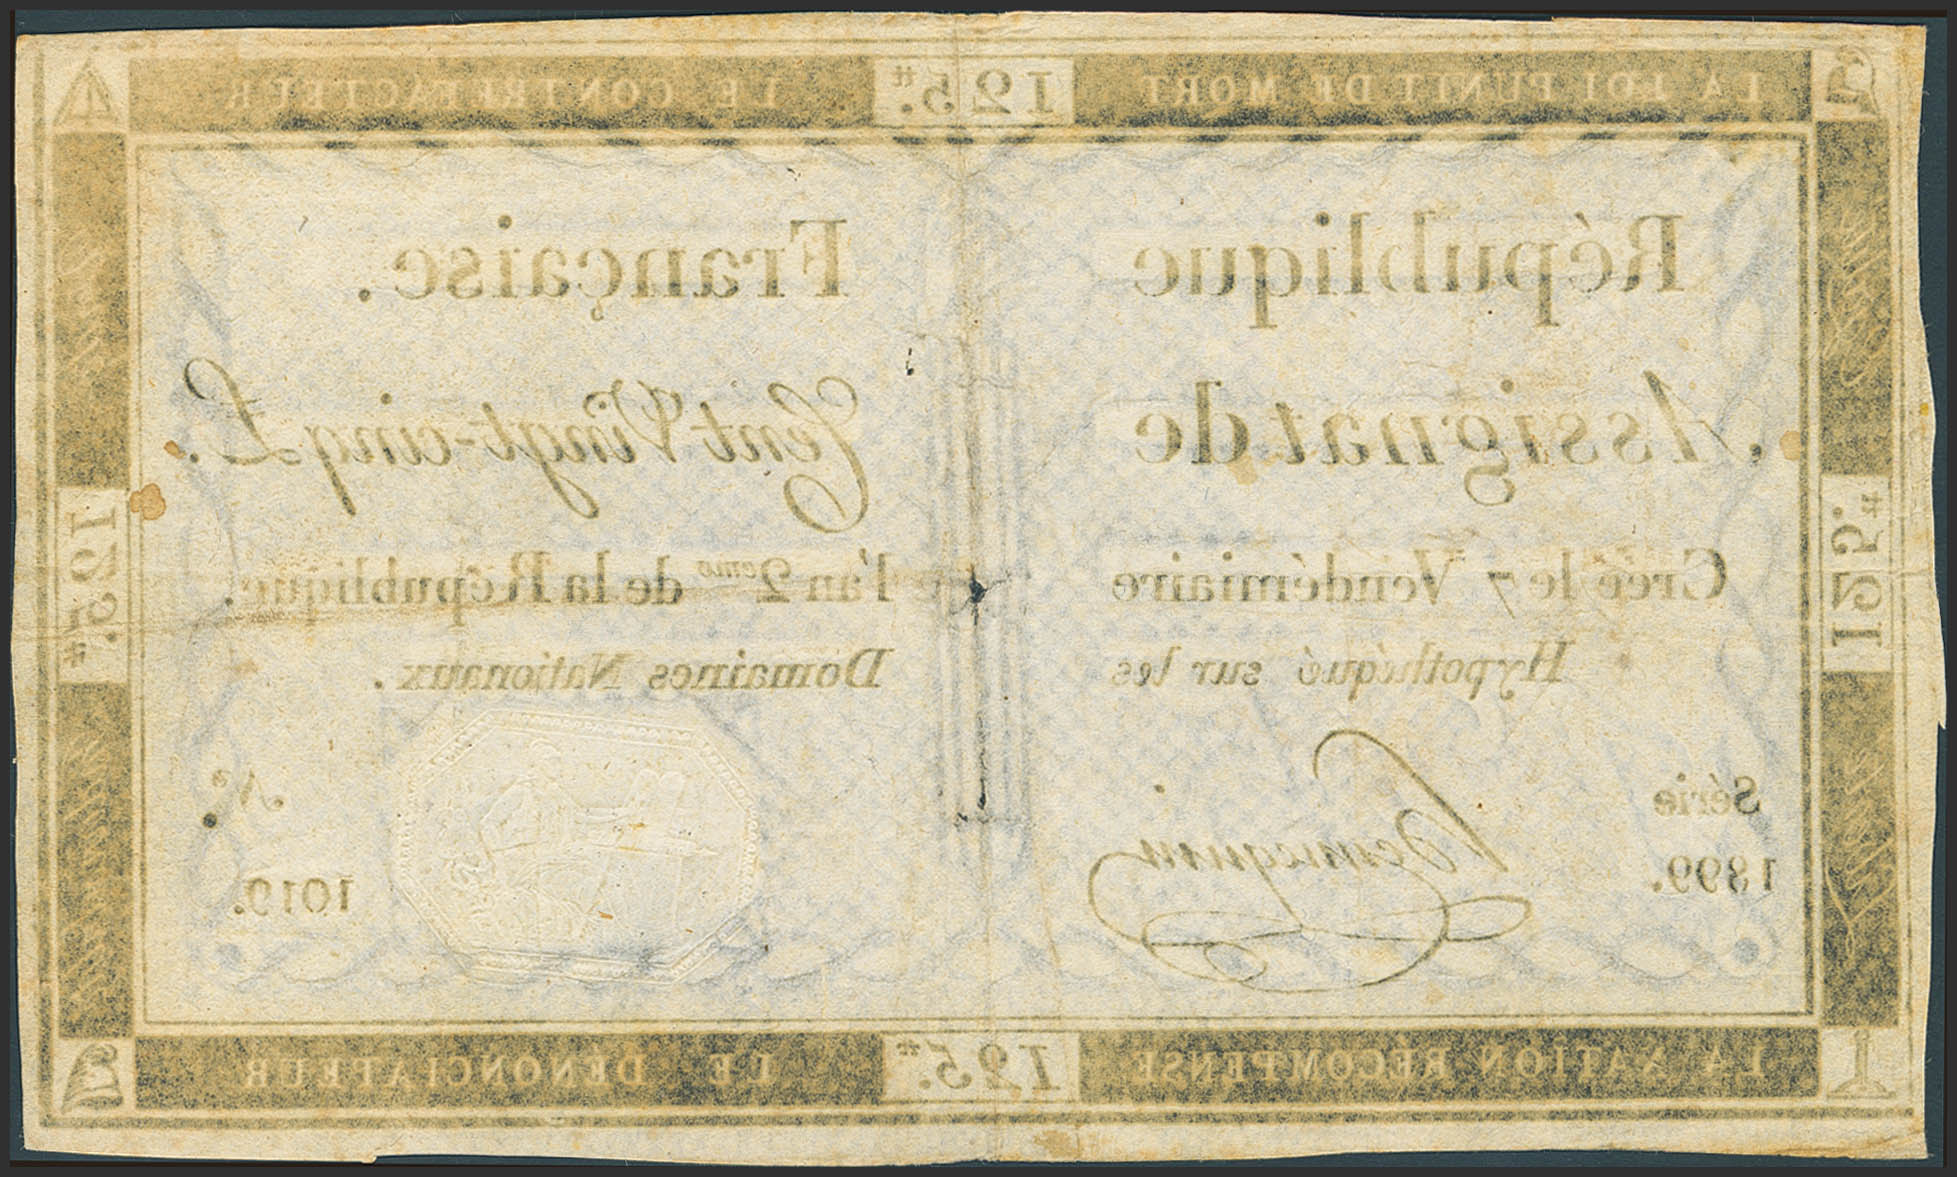 LA LOI PUNIT DE MORT 125.# LE CONTREFACTEUR
République Française.
Assignat de Cent-Vingt-cinq £.
Créé le 7 Vendémiaire de l'an 2eme de la République.
Hypothéqué sur les Domaines Nationaux.
Série
1899.
N°
1019.
125.#
125.#
LA NATION RÉCOMPENSE 125.# LE DÉNONCIATEUR